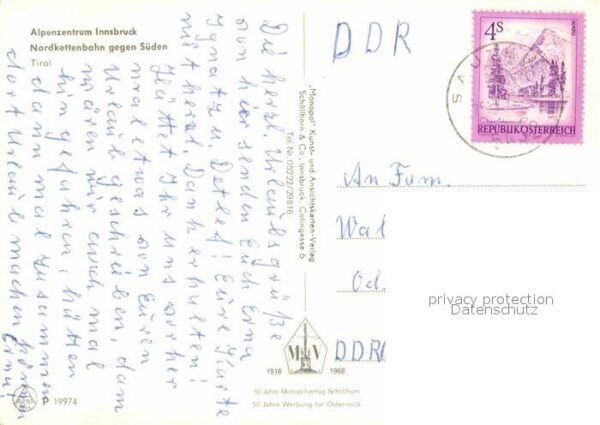 Alpenzentrum Innsbruck
Nordkettenbahn gegen Süden
Tirol
Die herzl. Urlaubsgrüße
von hier senden Euch Erna
Ignatz u. Detlef! Eure Karte
mit herzl. Dank erhalten!
Hättet Ihr uns vorher
mal etwas von Euren
Urlaub geschrieben, dann
wären wir auch mal
hingefahren, hätten
dann mal zusammen
dort Urlaub machen können
Erna!
P 19974
"Monopol" Kunst- und Ansichtskarten-Verlag
Schöllhorn & Co., Innsbruck, Colingasse 6
Tel. Nr. 05222/29816
MV
1918 1968
50 Jahre Monopolverlag Schöllhorn
50 Jahre Werbung für Österreich
DDR
4S
REPUBLIK ÖSTERREICH
An Fam.
Wal
Od.
privacy protection
Datenschutz
DDR